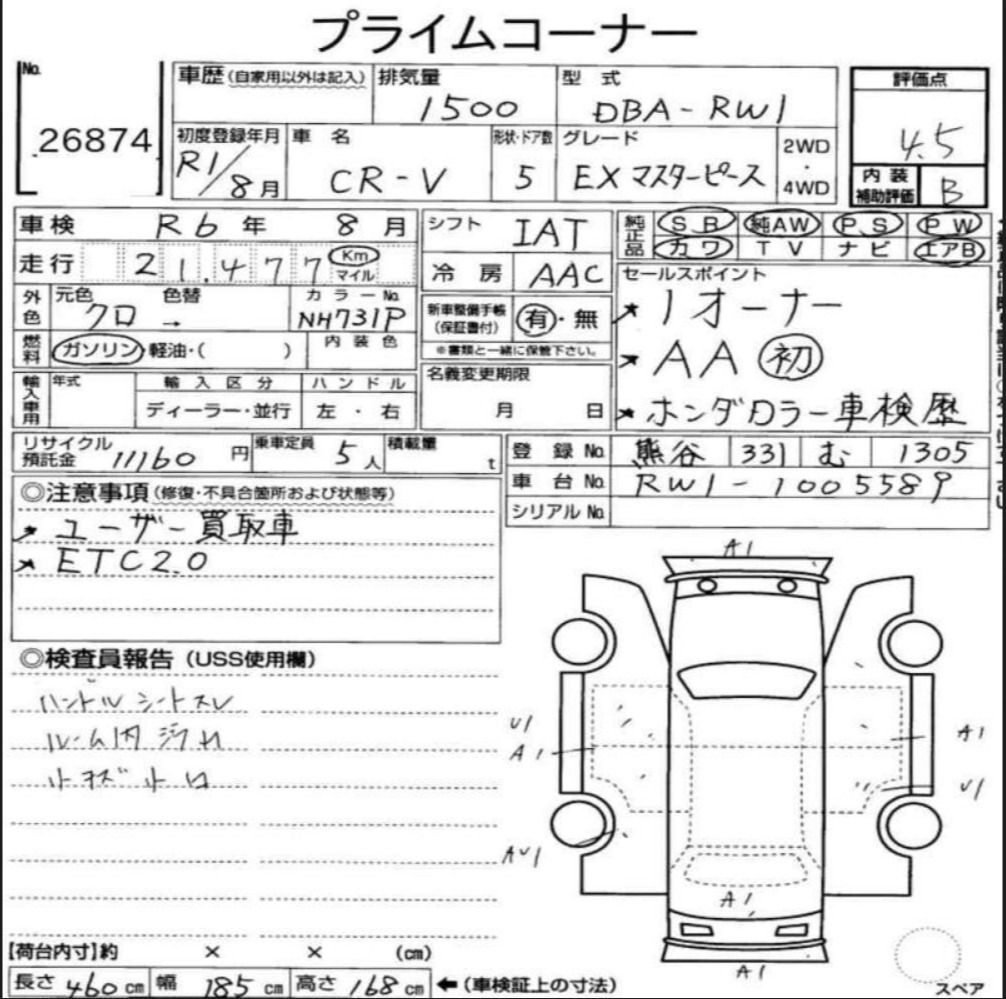 プライムコーナー
No. 26874
車歴(自家用以外は記入) 排気量 1500 型式 DBA-RW1
評価点 4.5
初度登録年月 R1/8月 車名 CR-V 形状・ドア数 5 グレード EX マスターピース 2WD・4WD
内装補助評価 B
車検 R6年 8月 シフト IAT 純正品 SR 純AW PS PW
カワ TV ナビ エアB
走行 21,477 Km マイル 冷房 AAC
セールスポイント
外色 元色 クロ 色替 → カラーNo. NH731P
新車整備手帳(保証書付) 有・無
※書類と一緒に保管下さい。
★1オーナー
燃料 ガソリン・軽油・( ) 内装色
★AA初
輸入車用 年式 輸入区分 ハンドル
ディーラー・並行 左・右
名義変更期限 月 日
★ホンダDラー車検歴
リサイクル預託金 11160円 乗車定員 5人 積載量 t
登録No. 熊谷 331 む 1305
車台No. RW1-1005589
シリアルNo.
◎注意事項(修復・不具合箇所および状態等)
★ユーザー買取車
★ETC2.0
◎検査員報告(USS使用欄)
ハンドルシートスレ
ルーム内汚れ
小キズ小凹
A1
U1
A1
A1
U1
AU1
A1
A1
【荷台内寸】約 × × (cm)
長さ 460cm 幅 185cm 高さ 168cm ←(車検証上の寸法)
スペア